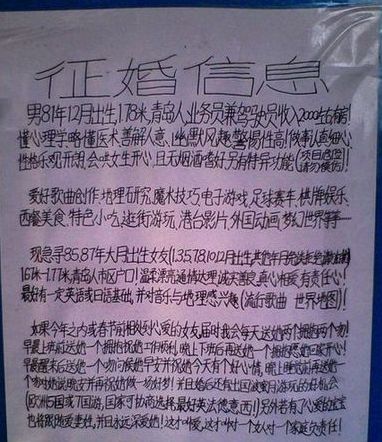 征婚信息
男81年12月出生,1.78米,青岛人,业务员兼驾驶员收入2000左右!
懂心理学略懂医术,善解人意、幽默风趣警惕性高!做事认真细心!
性格乐观开朗,会哄女生开心,且无烟酒嗜好,另有特异功能
爱好歌曲创作,地理研究,魔术技巧,电子游戏,足球赛车,棋牌娱乐
西餐美食,特色小吃,逛街游玩,港台影片,外国动画,梦幻世界等等
现急寻85,87年大月出生女友
1.67米-1.77米,青岛人市区户口!温柔漂亮通情达理,诚实善良,真心相爱,有责任心!
最好有一定英语或日语基础,并对音乐与地理感兴趣(流行歌曲 世界地图)!
如果今年之内或春节前相识到心爱的女友,届时我会每天送她两个拥抱两个吻!
早晨上班前送她一个拥抱祝她工作顺利,晚上下班后再送她一个拥抱愿她回家开心!
早晨醒来后送她一个吻问候她早安并祝她今天有个好心情,晚上睡觉前再送她一
个吻对她说晚安并再祝她做一场好梦!并且婚后还有出国蜜月游玩的好机会
(欧洲5国或7国游,国家可协商选择,最好英法德意西!)另外若有了心爱的宝宝